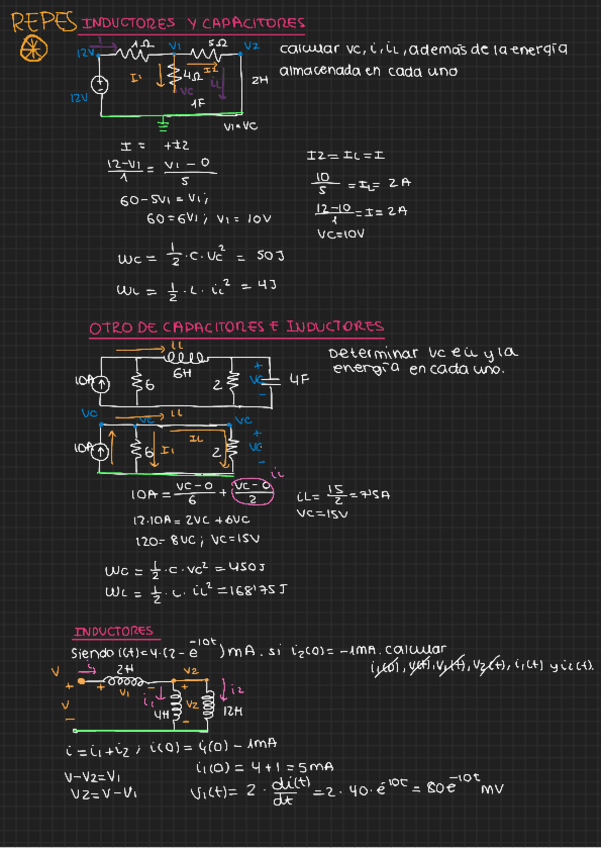 REPES INDUCTORES Y CAPACITORES
12V 1Ω V1 5Ω V2
I1 4Ω I2 iL 2H
12V VC
1F
V1=VC
calcular vc, i, iL, además de la energía
almacenada en cada uno
I = +I2
12-V1/1 = V1-0/5
60-5V1=V1;
60=6V1; V1=10V
I2=IL=I
10/5 =IL= 2A
12-10/1 =I=2A
VC=10V
WC = 1/2·C·VC² = 50J
WL = 1/2·L·iL² = 4J
OTRO DE CAPACITORES E INDUCTORES
iL
6H
10A 6 2 + VC - 4F
Determinar vc e iL y la
energía en cada uno.
VC VC iL VC
10A 6 I1 IL 2 + VC -
iL
10A = VC-0/6 + VC-0/2
12·10A = 2VC + 6VC
120= 8VC; VC=15V
iL= 15/2 =7'5A
VC=15V
WC = 1/2·C·VC² = 450J
WL = 1/2·L·iL² = 168'75J
INDUCTORES
Siendo i(t)=4·(2-e^-10t) mA. si i2(0)= -1mA. calcular
i1(0), V(t), V1(t), V2(t), i1(t) y i2(t).
V i 2H V2
+ + V1 - +
V i1 V2 i2
- 4H - 12H
i=i1+i2; i(0)= i1(0) - 1mA
i1(0) = 4+1 = 5mA
V-V2=V1
V2=V-V1
V1(t)= 2 · di(t)/dt = 2·40·e^-10t = 80e^-10t mV